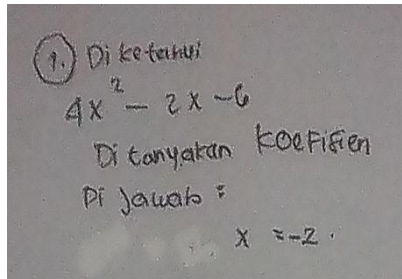 1. Diketahui
4x² - 2x - 6
Ditanyakan koefisien
Di Jawab :
x = -2.